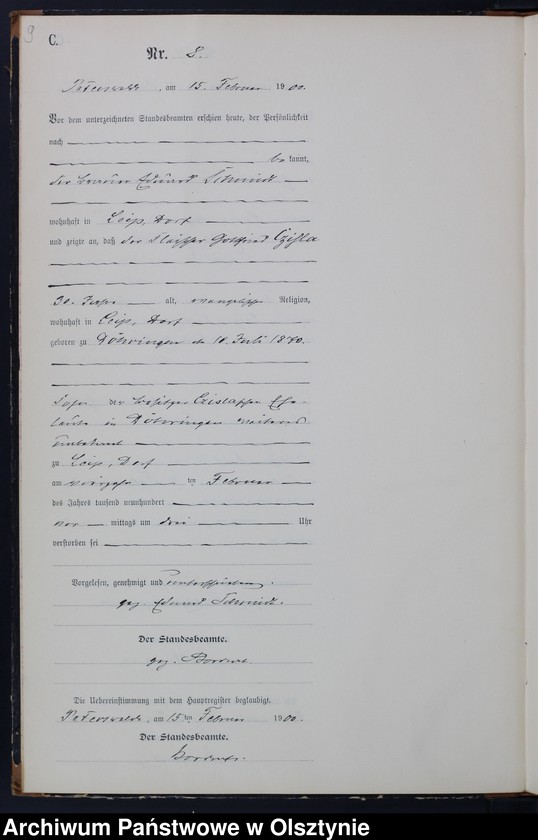 9
C.
Nr. 8.
Peterswalde, am 15. Februar 1900.
Vor dem unterzeichneten Standesbeamten erschien heute, der Persönlichkeit
nach
be kannt,
der Eduard Schmidt
wohnhaft in Leip, Dorf
und zeigte an, daß der Gottfried Czisla
30. Jahre alt, evangelischer Religion,
wohnhaft in Leip, Dorf
geboren zu Döhringen Juli
Sohn der Besitzer Ehe-
leute in Döhringen
zu Leip, Dorf
am ten Februar
des Jahres tausend neunhundert
vor mittags um drei Uhr
verstorben sei
Vorgelesen, genehmigt und unterschrieben.
gez. Eduard Schmidt.
Der Standesbeamte.
gez.
Die Uebereinstimmung mit dem Hauptregister beglaubigt.
Peterswalde, am 15 ten Februar 1900.
Der Standesbeamte.
Archiwum Państwowe w Olsztynie